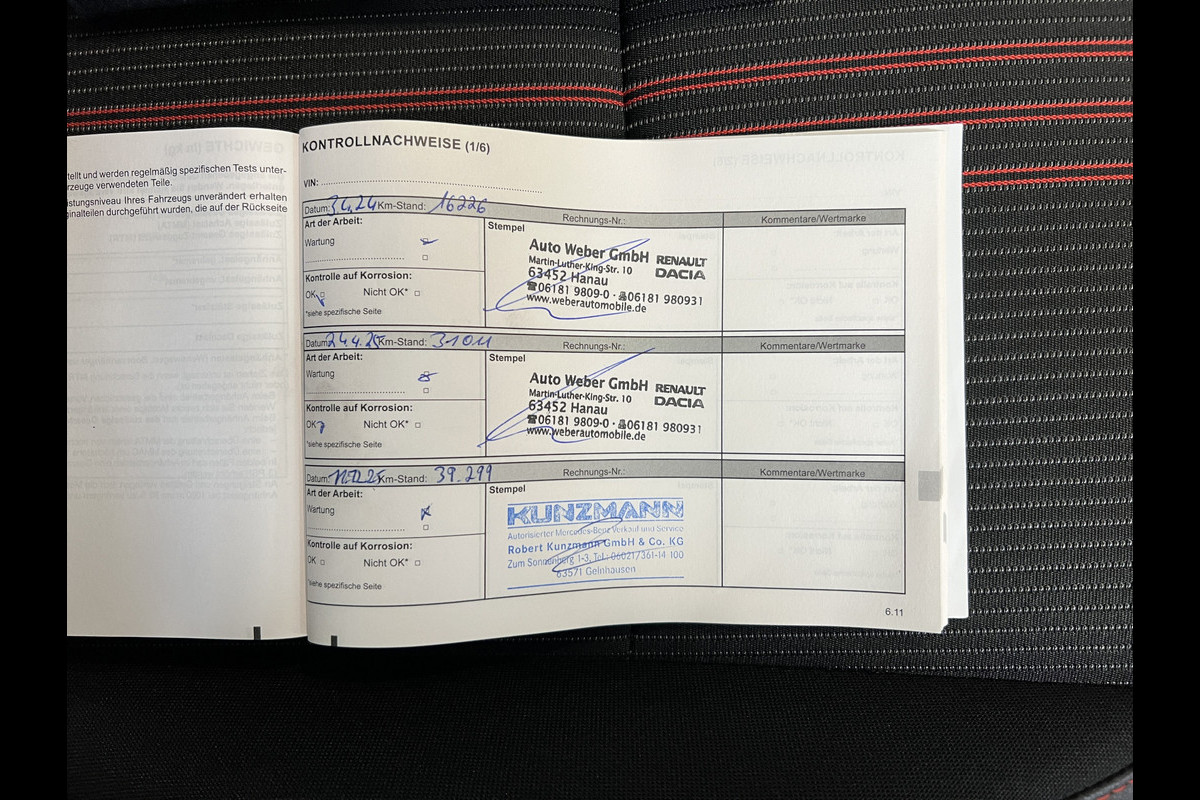 tellt und werden regelmäßig spezifischen Tests unter-
rzeuge verwendeten Teile.
istungsniveau Ihres Fahrzeugs unverändert erhalten
ginalteilen durchgeführt wurden, die auf der Rückseite
KONTROLLNACHWEISE (1/6)
VIN:
Datum: 3.4.24 Km-Stand: 16226 Rechnungs-Nr.: Kommentare/Wertmarke
Art der Arbeit:
Wartung
Kontrolle auf Korrosion:
OK Nicht OK*
*siehe spezifische Seite
Stempel
Auto Weber GmbH RENAULT
Martin-Luther-King-Str. 10 DACIA
63452 Hanau
☎06181 9809-0 · 06181 980931
www.weberautomobile.de
Datum: 24.4.25 Km-Stand: 31011 Rechnungs-Nr.: Kommentare/Wertmarke
Art der Arbeit:
Wartung
Kontrolle auf Korrosion:
OK Nicht OK*
*siehe spezifische Seite
Stempel
Auto Weber GmbH RENAULT
Martin-Luther-King-Str. 10 DACIA
63452 Hanau
☎06181 9809-0 · 06181 980931
www.weberautomobile.de
Datum: Km-Stand: 39.299 Rechnungs-Nr.: Kommentare/Wertmarke
Art der Arbeit:
Wartung
Kontrolle auf Korrosion:
OK Nicht OK*
*siehe spezifische Seite
Stempel
KUNZMANN
Autorisierter Mercedes-Benz Verkauf und Service
Robert Kunzmann GmbH & Co. KG
Zum Sonnenberg 1-3, Tel.: 06021/361-14 100
63571 Gelnhausen
6.11